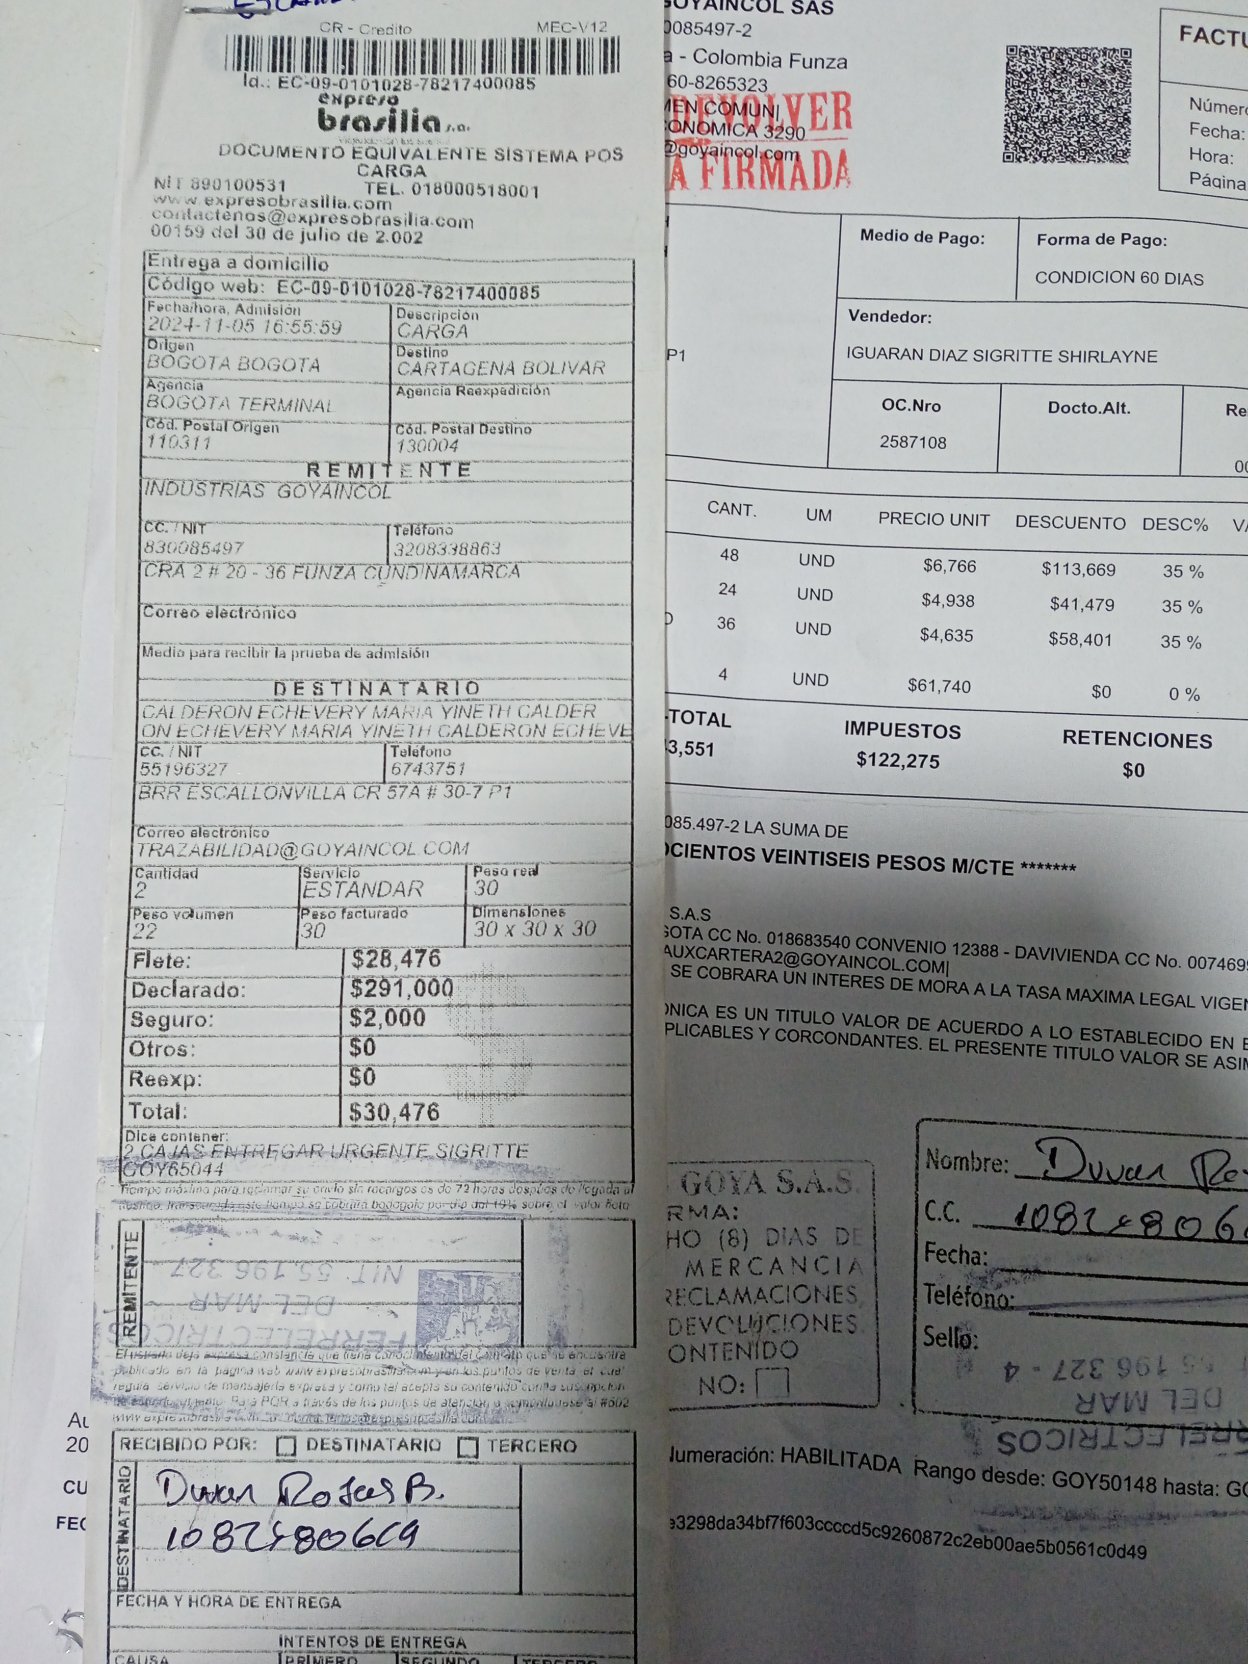 CR - Credito MEC-V12
Id.: EC-09-0101028-78217400085
expreso
brasilia s.a.
DOCUMENTO EQUIVALENTE SISTEMA POS
CARGA
NIT 890100531 TEL. 018000518001
www.expresobrasilia.com
contactenos@expresobrasilia.com
00159 del 30 de julio de 2.002
Entrega a domicilio
Código web: EC-09-0101028-78217400085
Fecha/hora, Admisión Descripción
2024-11-05 16:55:59 CARGA
Origen Destino
BOGOTA BOGOTA CARTAGENA BOLIVAR
Agencia Agencia Reexpedición
BOGOTA TERMINAL
Cód. Postal Origen Cód. Postal Destino
110311 130004
REMITENTE
INDUSTRIAS GOYAINCOL
CC. / NIT Teléfono
830085497 3208338863
CRA 2 # 20 - 36 FUNZA CUNDINAMARCA
Correo electrónico
Medio para recibir la prueba de admisión
DESTINATARIO
CALDERON ECHEVERY MARIA YINETH CALDER
ON ECHEVERY MARIA YINETH CALDERON ECHEVE
CC. / NIT Teléfono
55196327 6743751
BRR ESCALLONVILLA CR 57A # 30-7 P1
Correo electrónico
TRAZABILIDAD@GOYAINCOL.COM
Cantidad Servicio Peso real
2 ESTANDAR 30
Peso volumen Peso facturado Dimensiones
22 30 30 x 30 x 30
Flete: $28,476
Declarado: $291,000
Seguro: $2,000
Otros: $0
Reexp: $0
Total: $30,476
Dice contener:
2 CAJAS ENTREGAR URGENTE SIGRITTE
GOY65044
Tiempo máximo para reclamar su envío sin recargos es de 72 horas despues de llegada al
REMITENTE
NIT. 55.196.327 -
DEL MAR
FERRELECTRICOS
RECIBIDO POR: DESTINATARIO TERCERO
DESTINATARIO
Duvan Rojas B.
FECHA Y HORA DE ENTREGA
INTENTOS DE ENTREGA
CAUSA PRIMERO SEGUNDO TERCERO
GOYAINCOL SAS
0085497-2
a - Colombia Funza
60-8265323
MEN COMUN|
CONOMICA 3290
@goyaincol.com
DEVOLVER
A FIRMADA
FACTU
Número
Fecha:
Hora:
Página
Medio de Pago: Forma de Pago:
CONDICION 60 DIAS
Vendedor:
P1 IGUARAN DIAZ SIGRITTE SHIRLAYNE
OC.Nro Docto.Alt. Re
2587108 00
CANT. UM PRECIO UNIT DESCUENTO DESC% VA
48 UND $6,766 $113,669 35 %
24 UND $4,938 $41,479 35 %
36 UND $4,635 $58,401 35 %
4 UND $61,740 $0 0 %
-TOTAL IMPUESTOS RETENCIONES
3,551 $122,275 $0
085.497-2 LA SUMA DE
OCIENTOS VEINTISEIS PESOS M/CTE *******
S.A.S
GOTA CC No. 018683540 CONVENIO 12388 - DAVIVIENDA CC No. 0074699
AUXCARTERA2@GOYAINCOL.COM|
SE COBRARA UN INTERES DE MORA A LA TASA MAXIMA LEGAL VIGEN
ONICA ES UN TITULO VALOR DE ACUERDO A LO ESTABLECIDO EN E
PLICABLES Y CORCONDANTES. EL PRESENTE TITULO VALOR SE ASIM
GOYA S.A.S.
RMA:
HO (8) DIAS DE
MERCANCIA
RECLAMACIONES
DEVOLUCIONES
ONTENIDO
NO:
Nombre: Duvan Ro
C.C.
Fecha:
Teléfono:
Sello:
55 196 327 - 4
DEL MAR
RRELECTRICOS
Numeración: HABILITADA Rango desde: GOY50148 hasta: GO
e3298da34bf7f603ccccd5c9260872c2eb00ae5b0561c0d49
Au
20
CU
FEC